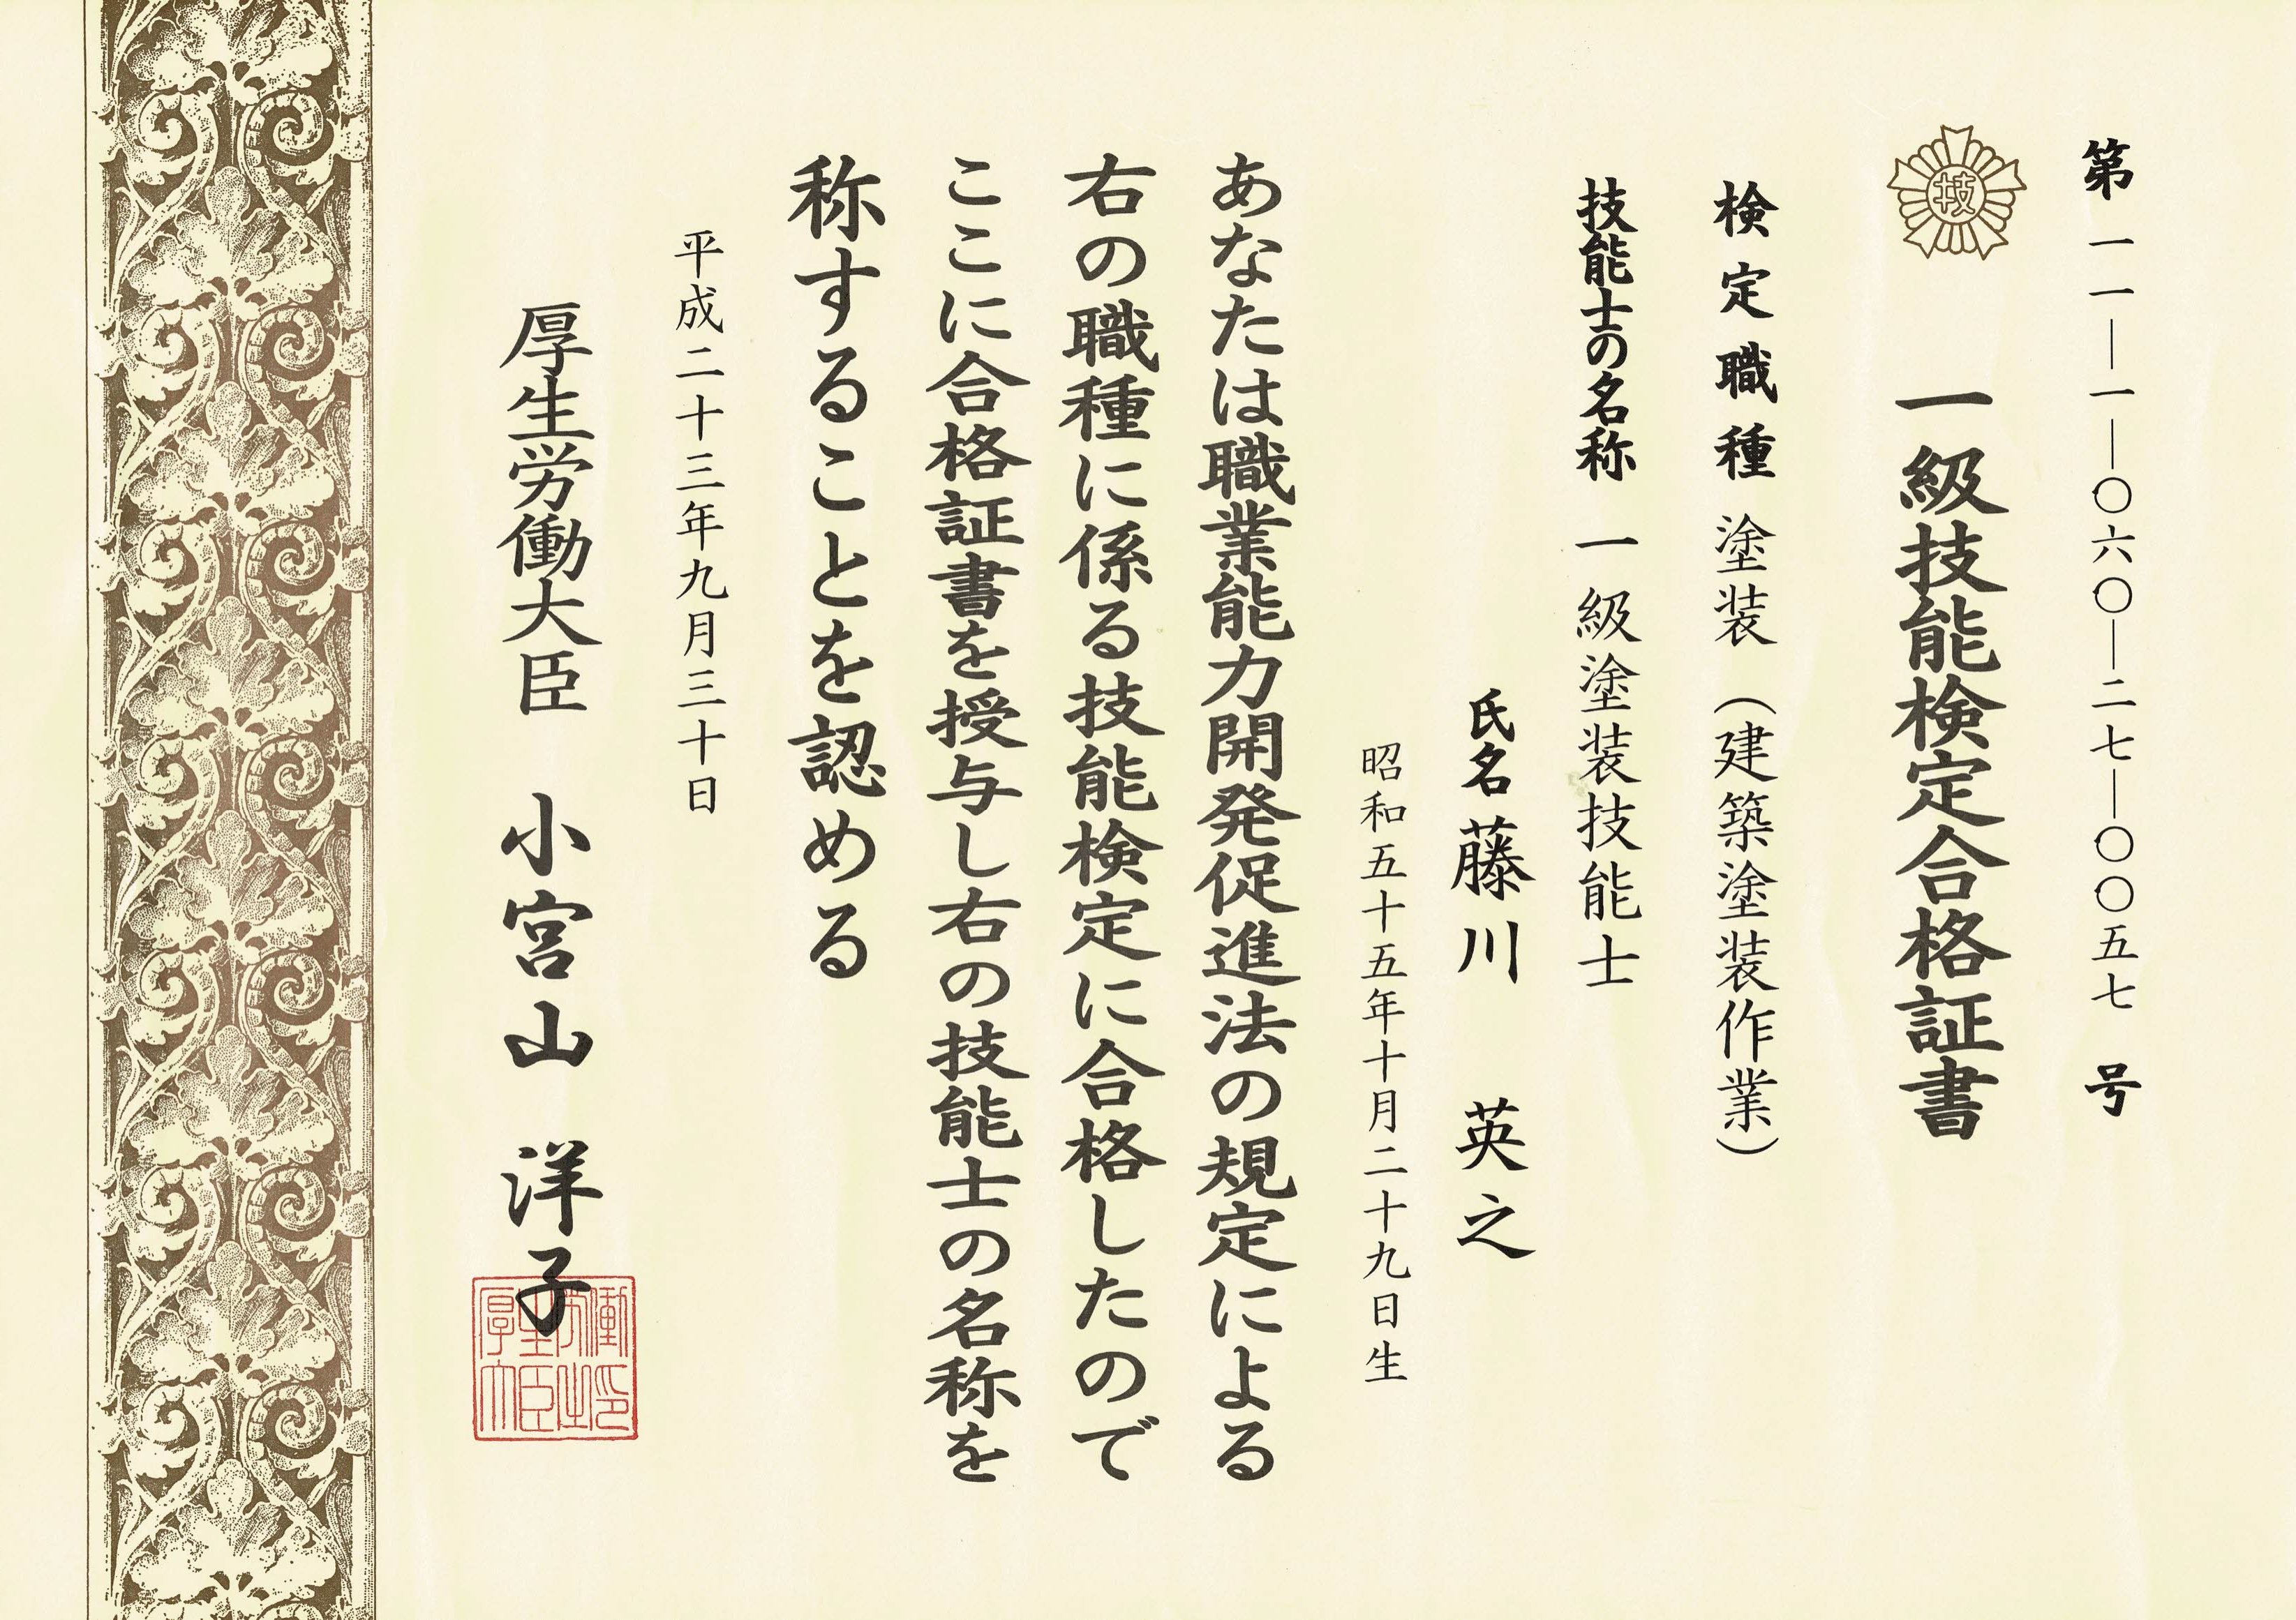 第一一―一―〇六〇―二七―〇〇五七 号
技
一級技能検定合格証書
検定職種 塗装（建築塗装作業）
技能士の名称 一級塗装技能士
氏名 藤川 英之
昭和五十五年十月二十九日生
あなたは職業能力開発促進法の規定による
右の職種に係る技能検定に合格したので
ここに合格証書を授与し右の技能士の名称を
称することを認める
平成二十三年九月三十日
厚生労働大臣 小宮山 洋子
厚生労働大臣之印